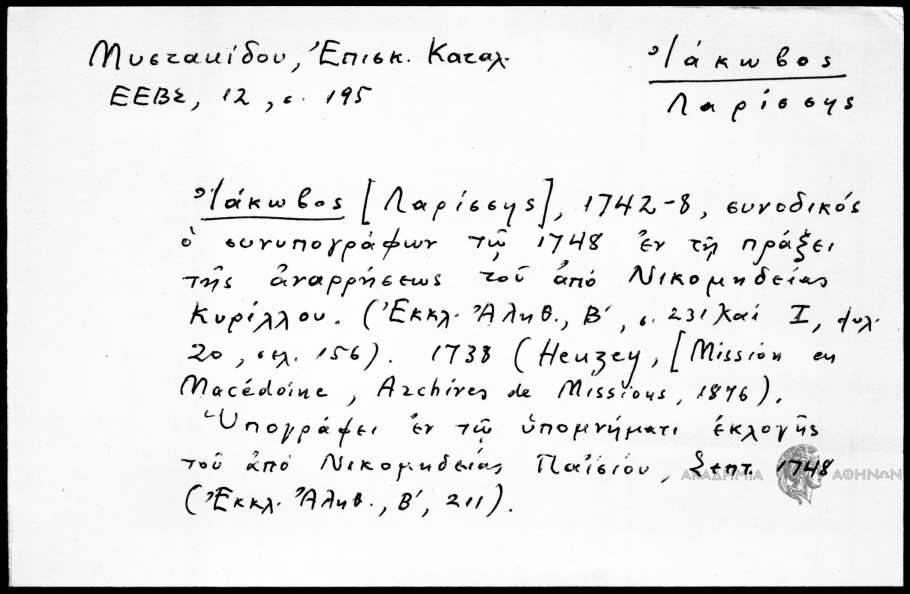 Μυστακίδου, Ἐπισκ. Καταλ.
ΕΕΒΣ, 12, σ. 195
Ἰάκωβος
Λαρίσσης
Ἰάκωβος [Λαρίσσης], 1742-8, συνοδικός
ὁ συνυπογράφων τῷ 1748 ἐν τῇ πράξει
τῆς ἀναρρήσεως τοῦ ἀπό Νικομηδείας
Κυρίλλου. (Ἐκκλ. Ἀληθ., Β', σ. 231 καί Ι, φυλ.
20, σελ. 156). 1738 (Heuzey, [Mission en
Macédoine, Archives de Missions, 1876).
Ὑπογράφει ἐν τῷ ὑπομνήματι ἐκλογῆς
τοῦ ἀπό Νικομηδείας Παϊσίου, Σεπτ. 1748
(Ἐκκλ. Ἀληθ., Β', 211).
ΑΚΑΔΗΜΙΑ ΑΘΗΝΩΝ